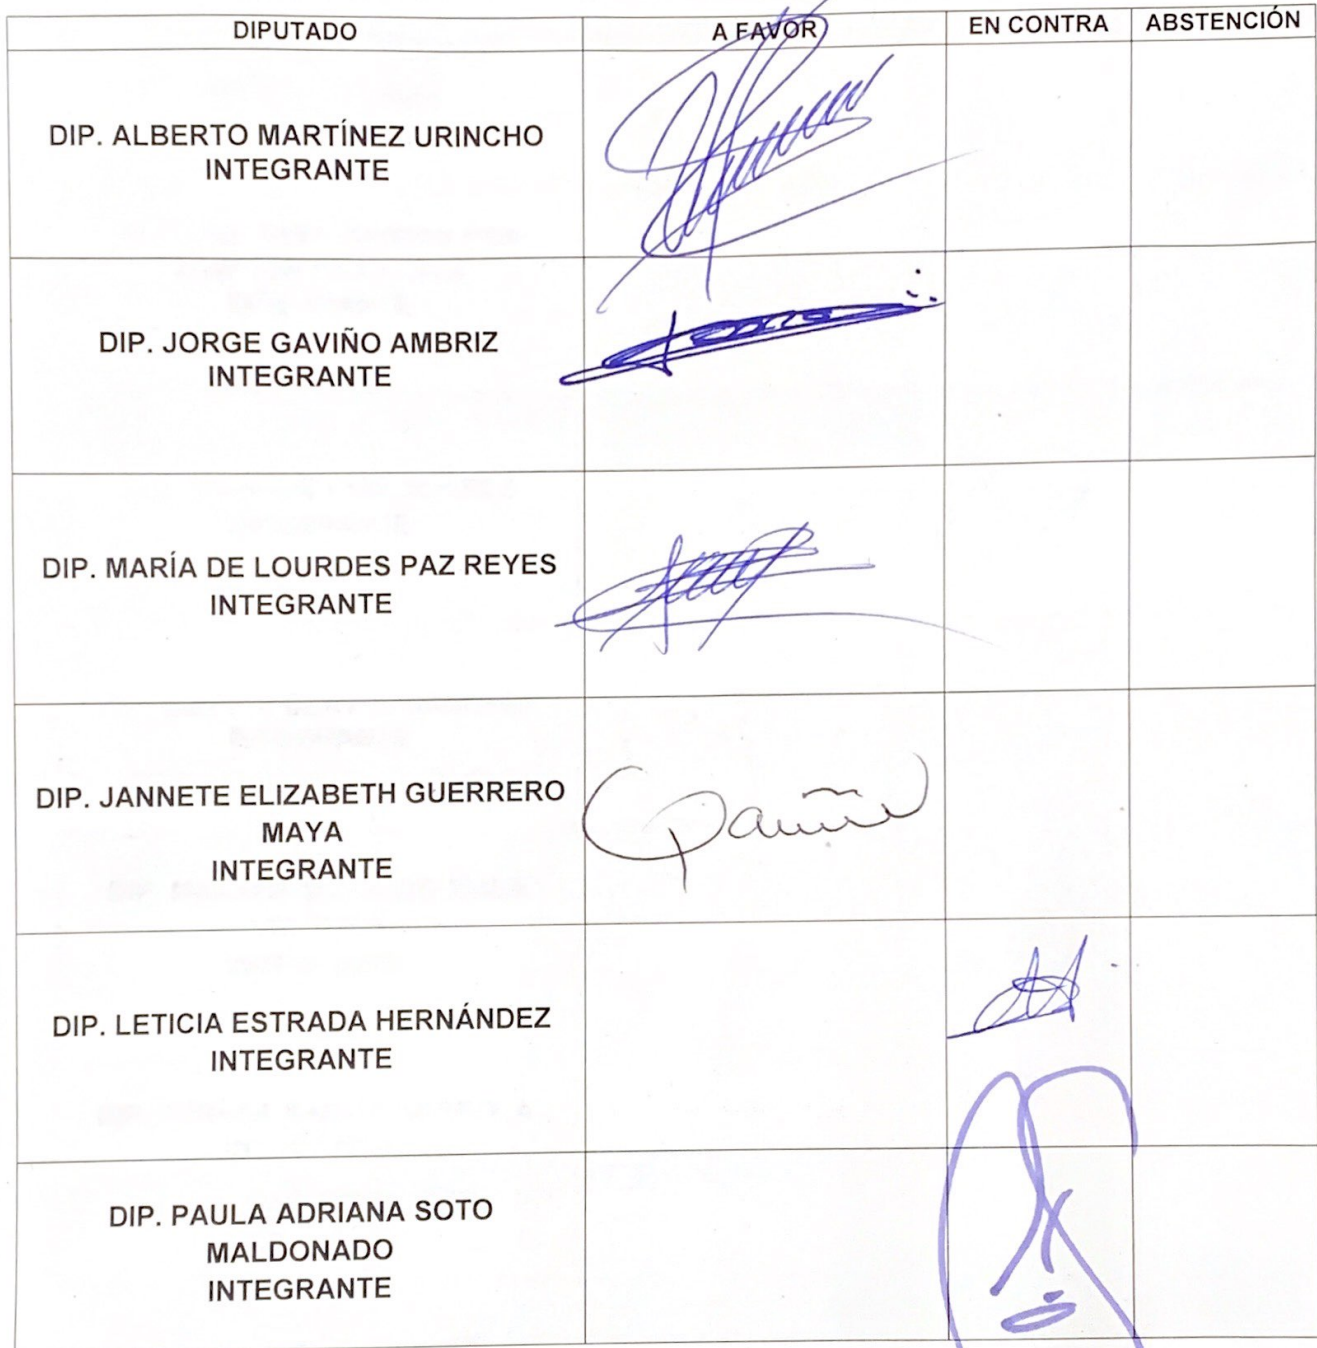 DIPUTADO A FAVOR EN CONTRA ABSTENCIÓN
DIP. ALBERTO MARTÍNEZ URINCHO
INTEGRANTE
DIP. JORGE GAVIÑO AMBRIZ
INTEGRANTE
DIP. MARÍA DE LOURDES PAZ REYES
INTEGRANTE
DIP. JANNETE ELIZABETH GUERRERO
MAYA
INTEGRANTE
DIP. LETICIA ESTRADA HERNÁNDEZ
INTEGRANTE
DIP. PAULA ADRIANA SOTO
MALDONADO
INTEGRANTE